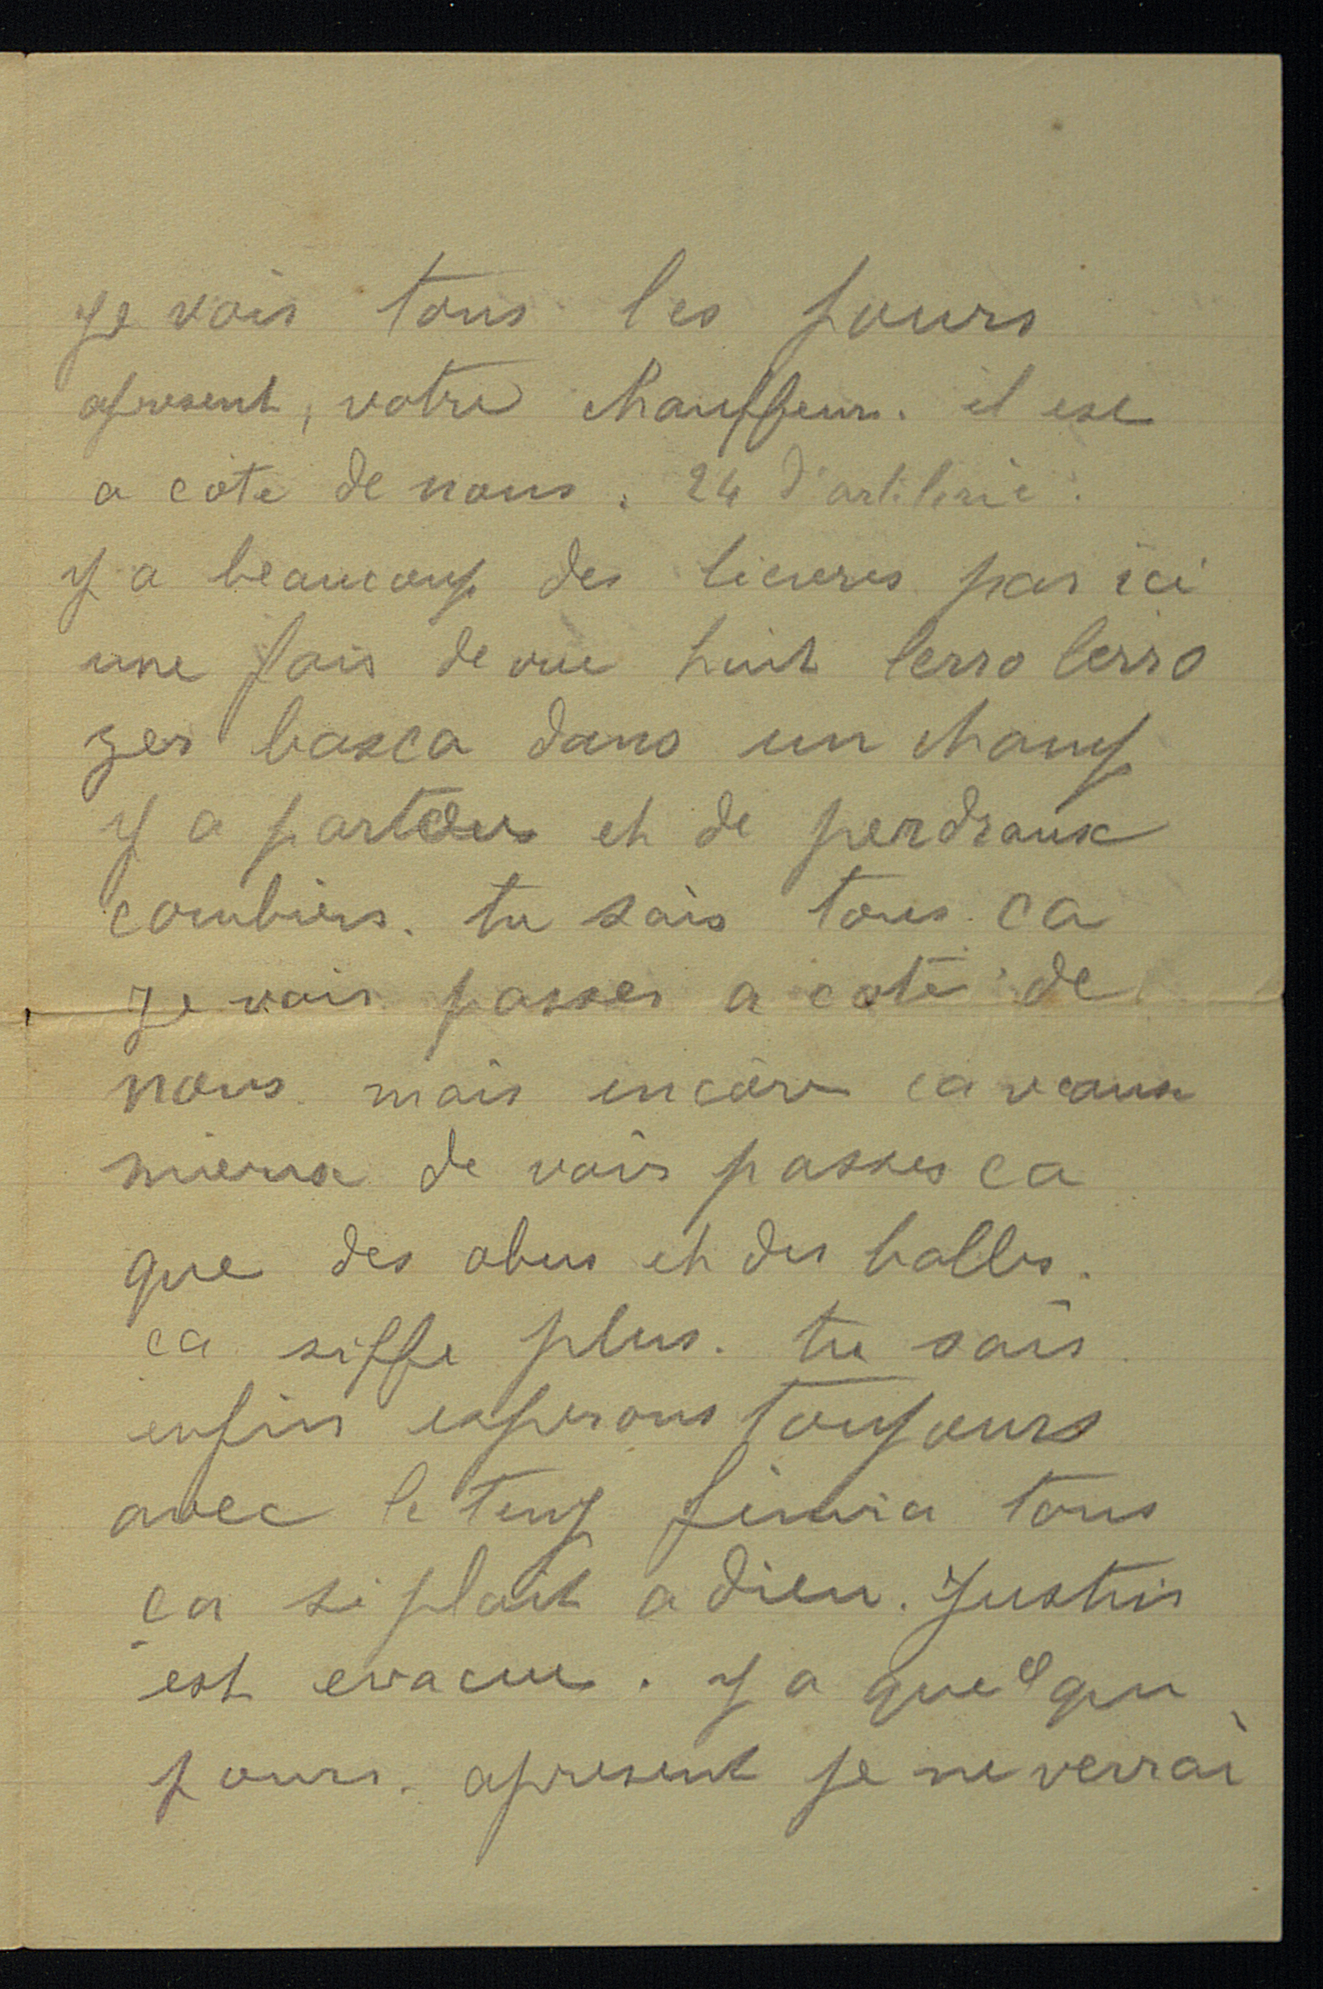 je vois tous les jours
apresent, votre chauffeur. il est
a cote de nous. 24 d'artilerie.
y a beaucoup des lievres par ici
une fois de vue huit lerro lerro
zer basca dans un champ
y a partou et de perdraux
combiens. tu sais tous ca
je vois passer a coté de
nous mais encore ca veaux
mieux de voir passer ca
que des obus et des balles.
ca siffe plus. tu sais
enfin esperons toujours
avec le temp finira tous
ca si plait a dieu. Justin
est evacue. y a quelqu
jours. apresent je ne verrai